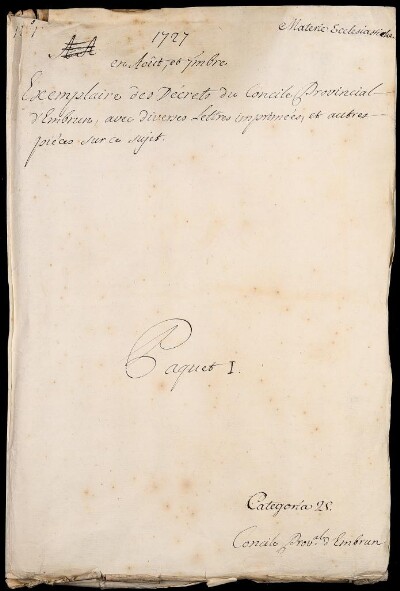 N.° 1.
Materie Ecclesiastiche
1727
en Aôut, et 7mbre
Exemplaire des Décrets du Concile Provincial
d'Embrun, avec diverses Lettres imprimées, et autres
piéces sur ce sujet.
Paquet I.
Categoria 25.
Concile Prov.al d'Embrun